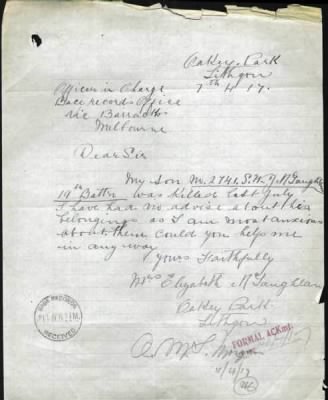 Oakey Park
Lithgow
7th 4 17.
Officer in Charge
Base records Office
Vic Barracks
Melbourne
Dear Sir
My Son No. 2741. S.W.J. McLaughlan
19th Battn was killed last July
I have had no advise about his
belongings as I am most anxious
about them could you help me
in any way
yours Faithfully
Mrs Elizabeth McLaughlan
Oakey Park
Lithgow
BASE RECORDS
RECEIVED
FORMAL ACKmt.